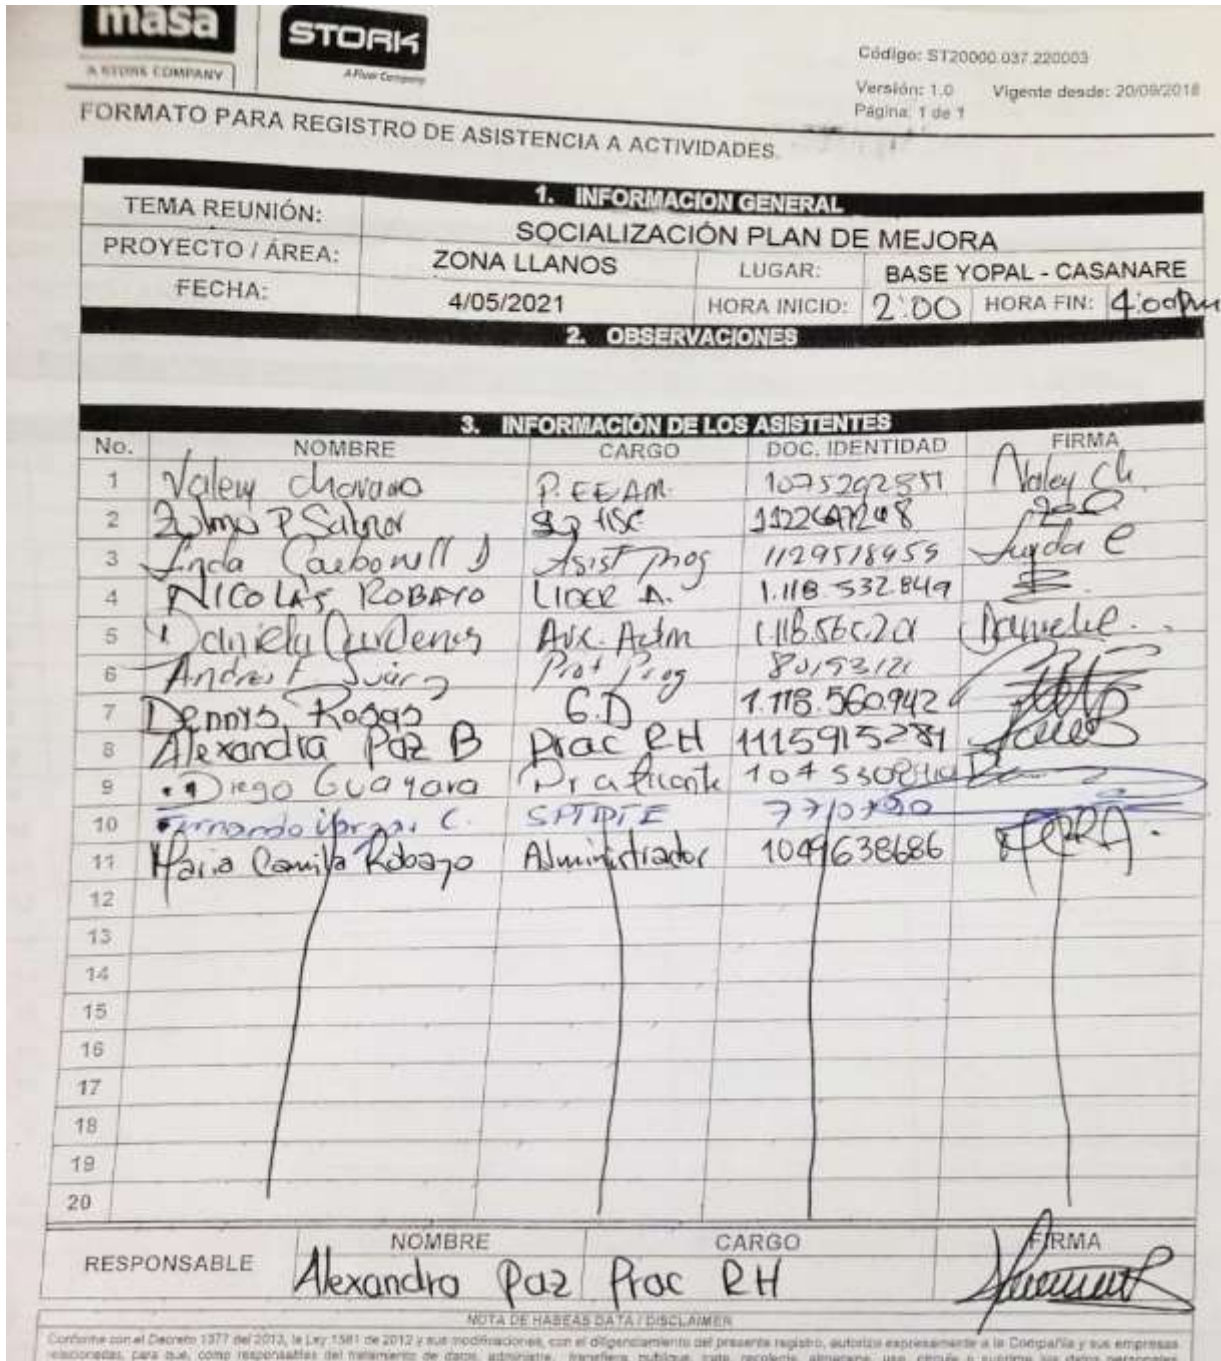 masa
STORK
A STORK COMPANY
A Fluor Company
Código: ST20000.037.220003
Versión: 1.0 Vigente desde: 20/09/2018
Página: 1 de 1
FORMATO PARA REGISTRO DE ASISTENCIA A ACTIVIDADES.
1. INFORMACION GENERAL
TEMA REUNIÓN: SOCIALIZACIÓN PLAN DE MEJORA
PROYECTO / ÁREA: ZONA LLANOS LUGAR: BASE YOPAL - CASANARE
FECHA: 4/05/2021 HORA INICIO: 2:00 HORA FIN: 4:00pm
2. OBSERVACIONES
3. INFORMACIÓN DE LOS ASISTENTES
No. NOMBRE CARGO DOC. IDENTIDAD FIRMA
1 P. EEAM. Valey Ch
2 Zulma P
3 Carbonell Asist prog 1129518959
4 NICOLÁS ROBAYO LIDER A. 1.118.532.849
5 Daniela Aux. Adm
6 Andres F 80193121
7 Dennys Rosas G.D 1.118.560.942
8 Alexandra Paz B Prac RH
9 Diego Guayara Practicante
10 Fernando C.
11 Maria Camila Robayo Administrador 1049638686
12
13
14
15
16
17
18
19
20
RESPONSABLE NOMBRE CARGO FIRMA
Alexandra Paz Prac RH
NOTA DE HABEAS DATA / DISCLAIMER
Conforme con el Decreto 1377 del 2013, la Ley 1581 de 2012 y sus modificaciones, con el diligenciamiento del presente registro, autorizo expresamente a la Compañía y sus empresas
relacionadas, para que, como responsables del tratamiento de datos, administre, transfiera, publique,